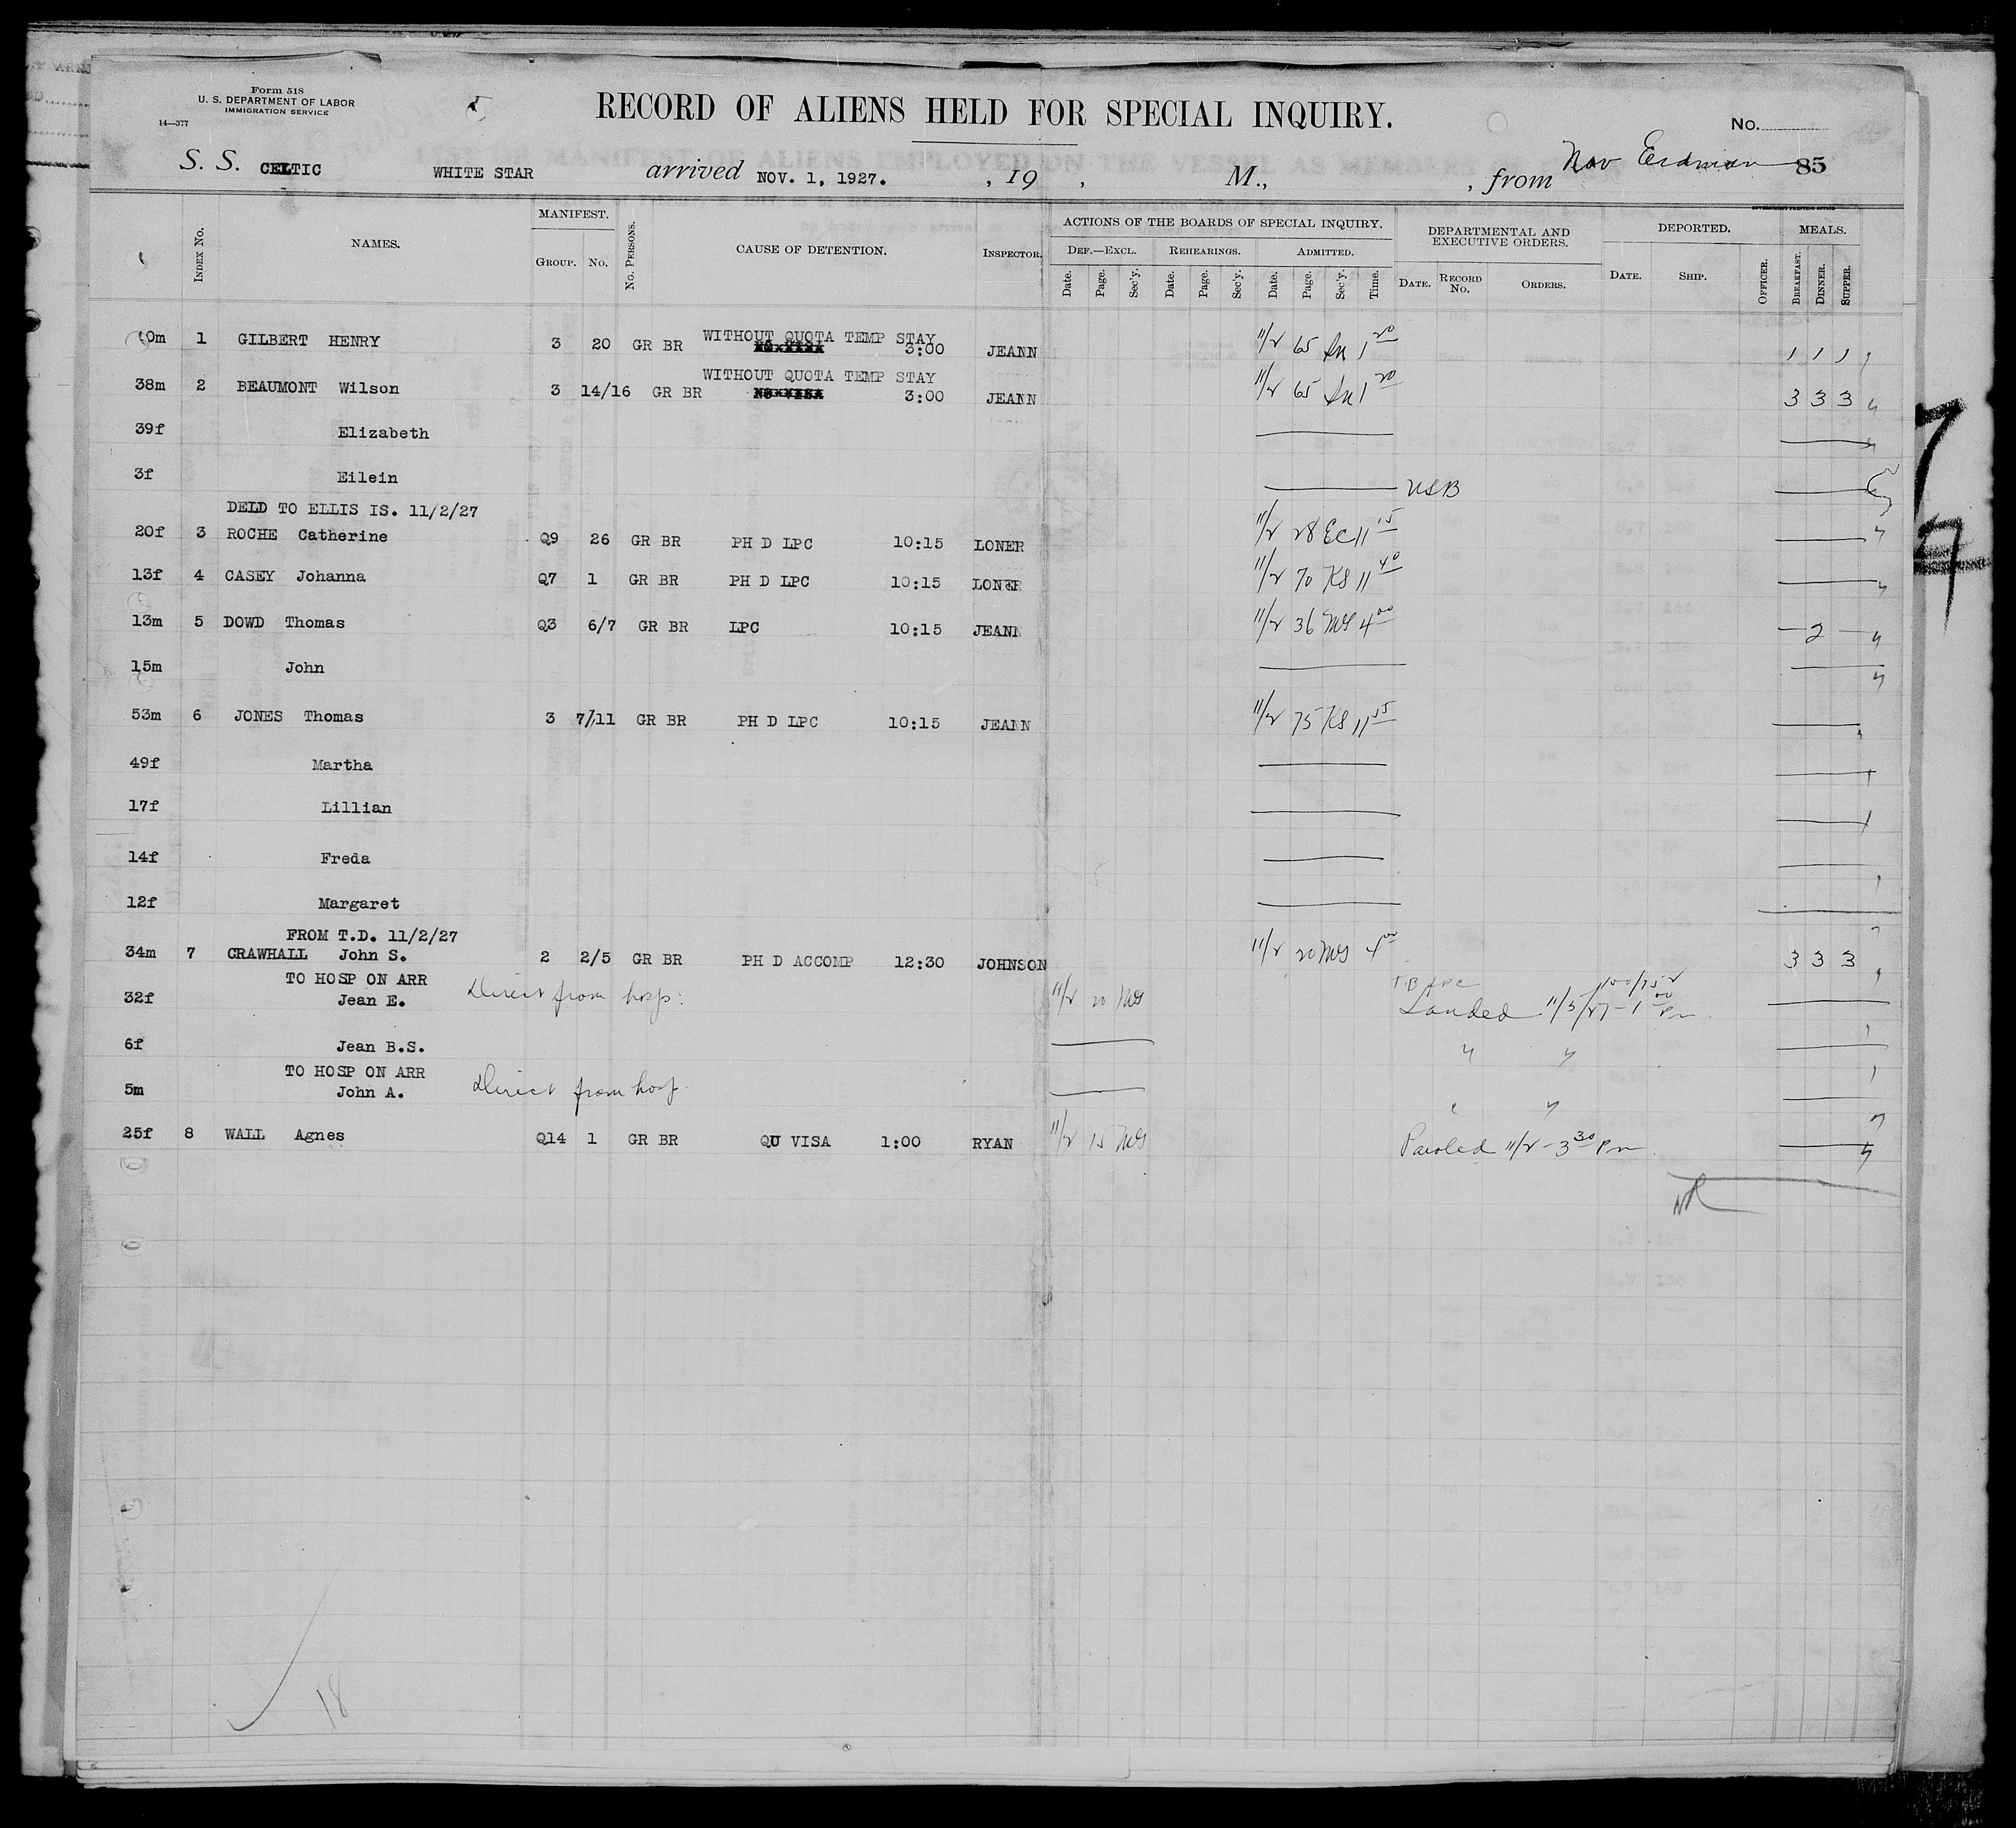 Form 518
U. S. DEPARTMENT OF LABOR
IMMIGRATION SERVICE
14—377
RECORD OF ALIENS HELD FOR SPECIAL INQUIRY.
No.
S. S. CELTIC WHITE STAR arrived NOV. 1, 1927. , 19 , M., , from Nov Erdman 85
INDEX No. NAMES. MANIFEST. GROUP. No. No. PERSONS. CAUSE OF DETENTION. INSPECTOR. ACTIONS OF THE BOARDS OF SPECIAL INQUIRY. DEF.—EXCL. Date. Page. Sec'y. REHEARINGS. Date. Page. Sec'y. ADMITTED. Date. Page. Sec'y. Time. DEPARTMENTAL AND EXECUTIVE ORDERS. DATE. RECORD No. ORDERS. DEPORTED. DATE. SHIP. OFFICER. MEALS. BREAKFAST. DINNER. SUPPER.
WITHOUT QUOTA TEMP STAY
0m 1 GILBERT HENRY 3 20 GR BR 3:00 JEANN 11/2 65 1 20 1 1 1
WITHOUT QUOTA TEMP STAY
38m 2 BEAUMONT Wilson 3 14/16 GR BR 3:00 JEANN 11/2 65 1 20 3 3 3
39f Elizabeth
3f Eilein USB
DELD TO ELLIS IS. 11/2/27
20f 3 ROCHE Catherine Q9 26 GR BR PH D LPC 10:15 LONER 11/2 28 EC 11 15
13f 4 CASEY Johanna Q7 1 GR BR PH D LPC 10:15 LONER 11/2 70 KS 11 40
13m 5 DOWD Thomas Q3 6/7 GR BR LPC 10:15 JEANN 11/2 36 MS 4 00 2
15m John
53m 6 JONES Thomas 3 7/11 GR BR PH D LPC 10:15 JEANN 11/2 75 KS 11 55
49f Martha
17f Lillian
14f Freda
12f Margaret
FROM T.D. 11/2/27
34m 7 CRAWHALL John S. 2 2/5 GR BR PH D ACCOMP 12:30 JOHNSON 11/2 20 MS 4 00 3 3 3
TO HOSP ON ARR
32f Jean E. Direct from hosp: 11/2 20 MS Landed 11/5/27 - 1 00 Pm
6f Jean B.S. " "
TO HOSP ON ARR
5m John A. Direct from hosp. " "
25f 8 WALL Agnes Q14 1 GR BR QU VISA 1:00 RYAN 11/2 15 MS Paroled 11/2 - 3 30 Pm
NR
18